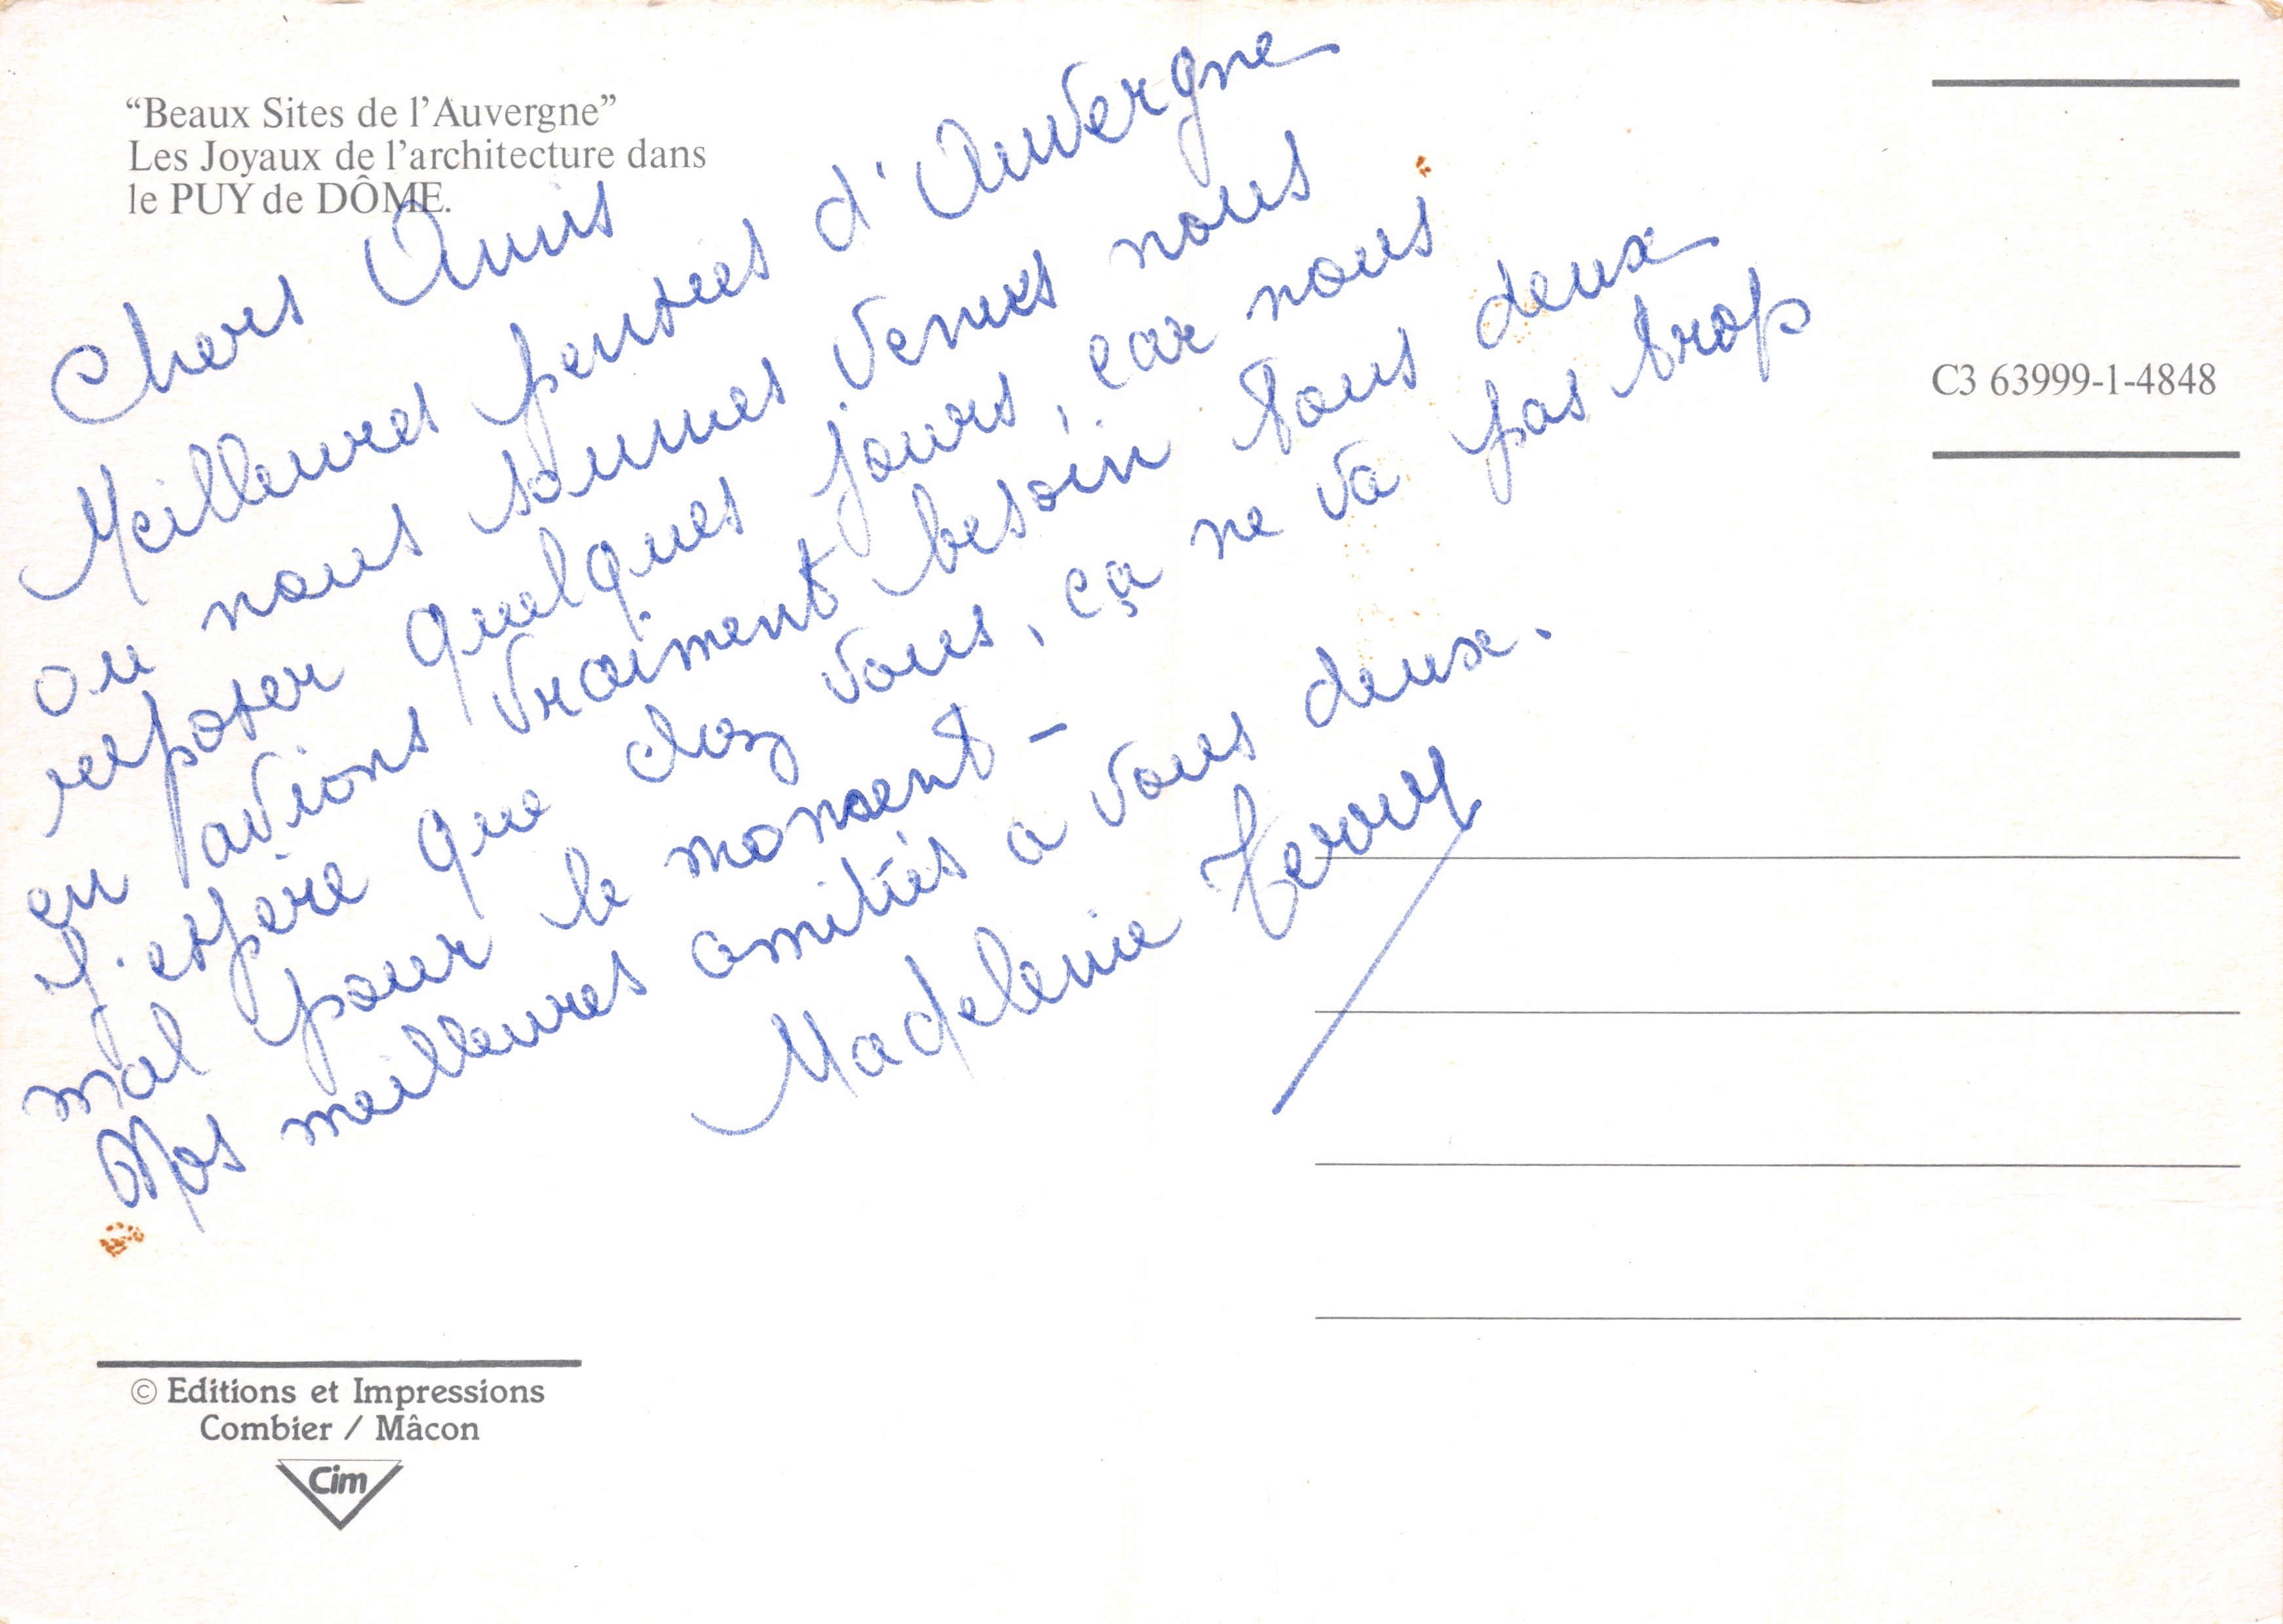 “Beaux Sites de l’Auvergne”
Les Joyaux de l’architecture dans
le PUY de DÔME.
Chers Amis
Meilleures pensées d'Auvergne
ou nous sommes venus nous
reposer quelques jours, car nous
en avions vraiment besoin tous deux
J'espère que chez vous, ça ne va pas trop
mal pour le moment -
Nos meilleures amitiés a vous deux.
Madeleine
C3 63999-1-4848
© Editions et Impressions
Combier / Mâcon
Cim